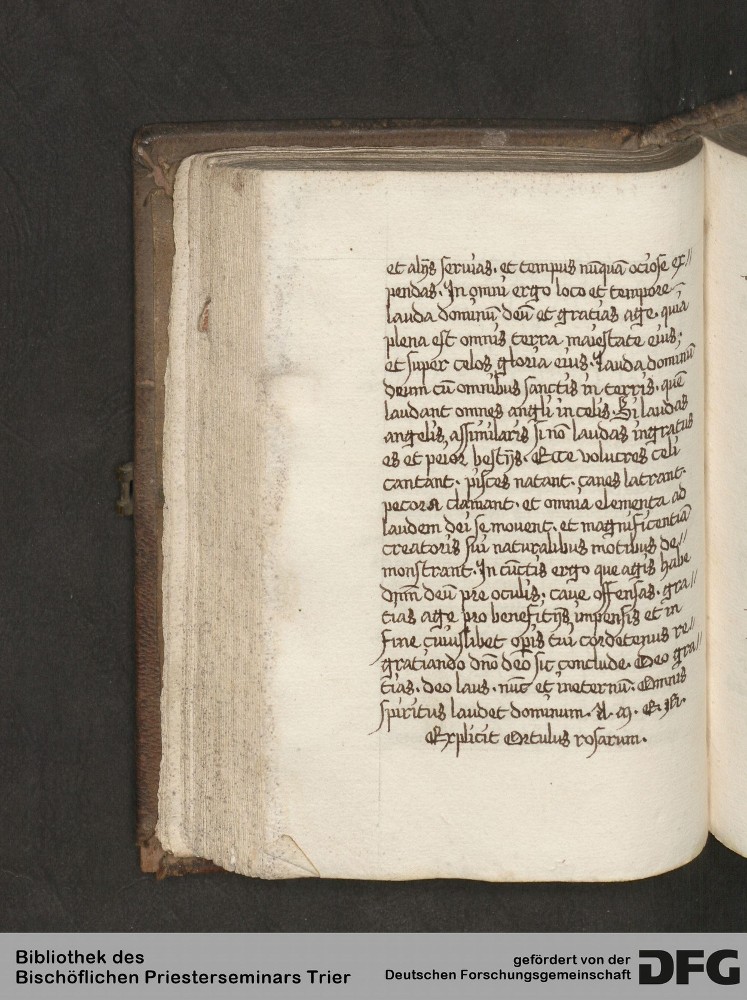 et alijs seruias. et tempus nūquā ociose ex//
pendas. In omni ergo loco et tempore
lauda dominū deū et gratias age. quia
plena est omnis terra maiestate eius;
et super celos gloria eius. Lauda dominū
deum cū omnibus sanctis in terris. quē
laudant omnes angli in celis. Si laudas
angelis assimilaris si nō laudas ingratus
es et peior bestijs. Ecce volucres celi
cantant. pisces natant. canes latrant.
pecora clamant. et omnia elementa ad
laudem dei se mouent. et magnificentiā
creatoris sui naturalibus motibus de//
monstrant. In cūctis ergo que agis habe
dnm deū pre oculis. caue offensas. gra//
tias age pro beneficijs impensis et in
fine cuiuslibet opis tui cordetenus re//
gratiando dno deo sic conclude. Deo gra//
tias. deo laus. nūc et ineternū. Omnis
spiritus laudet dominum. A. M. E. N.
Explicit Ortulus rosarum.
Bibliothek des
Bischöflichen Priesterseminars Trier
gefördert von der
Deutschen Forschungsgemeinschaft DFG